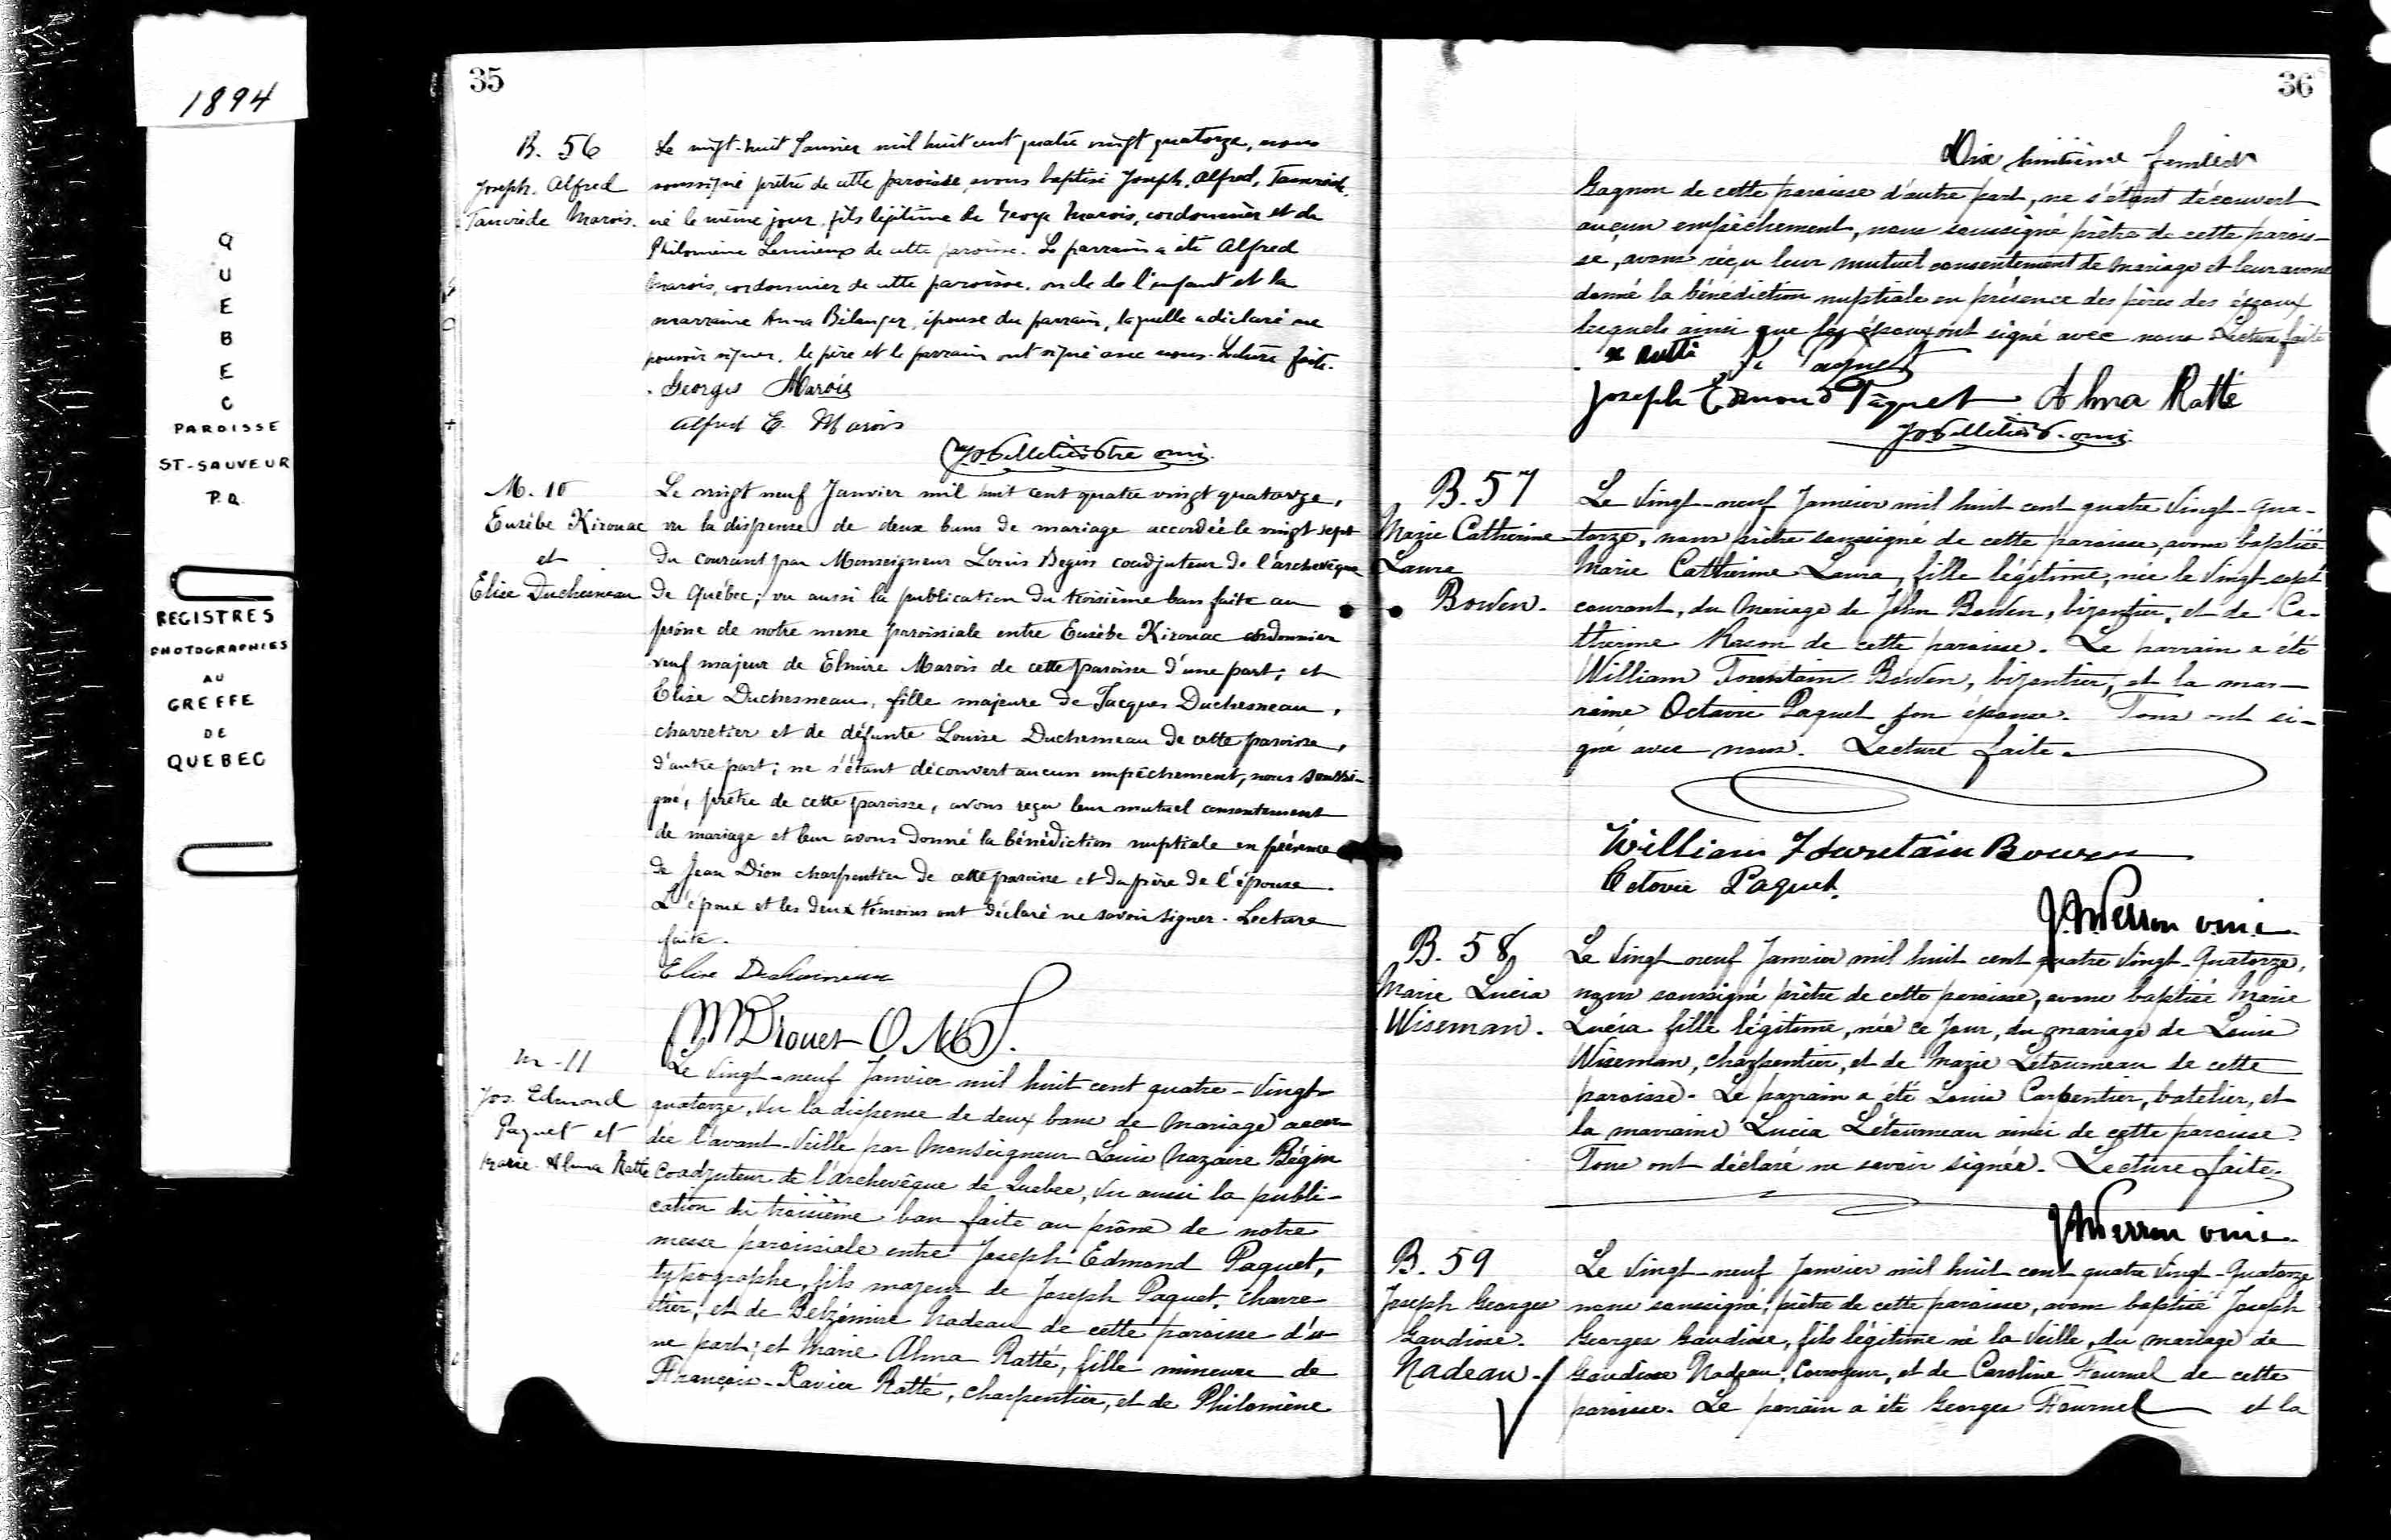 1894
QUEBEC
PAROISSE
ST-SAUVEUR
P.Q.
REGISTRES
PHOTOGRAPHIES
AU
GREFFE
DE
QUEBEC
35
B. 56
Joseph. Alfred
Tancrède Marois.
Le vingt-huit Janvier mil huit cent quatre vingt quatorze, nous
soussigné prêtre de cette paroisse, avons baptisé Joseph, Alfred, Tancrède,
né le même jour, fils légitime de George Marois, cordonnier et de
Philomène Lemieux de cette paroisse. Le parrain a été Alfred
Marois, cordonnier de cette paroisse, oncle de l'enfant et la
marraine Anna Bélanger, épouse du parrain, laquelle a déclaré ne
pouvoir signer. le père et le parrain ont signé avec nous. Lecture faite.
Georges Marois
Alfred E. Marois
omi.
M. 10
Eusèbe Kirouac
et
Elise Duchesneau
Le vingt neuf Janvier mil huit cent quatre vingt quatorze,
vu la dispense de deux bans de mariage accordée le vingt sept
du courant par Monseigneur Louis Begin coadjuteur de l'archevêque
de Québec; vu aussi la publication du troisième ban faite au
prône de notre messe paroissiale entre Eusèbe Kirouac cordonnier
veuf majeur de Elmire Marois de cette paroisse d'une part; et
Elise Duchesneau, fille majeure de Jacques Duchesneau,
charretier et de défunte Louise Duchesneau de cette paroisse,
d'autre part; ne s'étant découvert aucun empêchement, nous soussi-
gné, prêtre de cette paroisse, avons reçu leur mutuel consentement
de mariage et leur avons donné la bénédiction nuptiale en présence
de Jean Dion charpentier de cette paroisse et du père de l'épouse.
L'époux et les deux témoins ont déclaré ne savoir signer. Lecture
faite.
Elise
Drouet O.M.I.
M-11
Jos. Edmond
Paquet et
Marie-Alma Ratté
Le Vingt-neuf Janvier mil huit cent quatre-Vingt
quatorze, Vu la dispense de deux bans de Mariage accor-
dée l'avant-Veille par Monseigneur Louis Nazaire Bégin
Coadjuteur de l'Archevêque de Quebec, Vu aussi la publi-
cation du troisième ban faite au prône de notre
messe paroissiale entre Joseph Edmond Paquet,
typographe, fils majeur de Joseph Paquet, Charre-
tier, et de Belzémire Nadeau de cette paroisse d'u-
ne part; et Marie Alma Ratté, fille mineure de
François-Xavier Ratté, Charpentier, et de Philomène
36
Dix huitième feuillet
Gagnon de cette paroisse d'autre part, ne s'étant découvert
aucun empêchement, nous soussigné prêtre de cette parois-
se, avons reçu leur mutuel consentement de Mariage et leur avons
donné la bénédiction nuptiale en présence des pères des époux
lesquels ainsi que les époux ont signé avec nous. Lecture faite
Ratté Paquet
Joseph Edmond Paquet Alma Ratté
omi.
B. 57
Marie Catherine
Laura
Bowen.
Le Vingt-neuf Janvier mil huit cent quatre Vingt-Qua-
torze, nous prêtre soussigné de cette paroisse, avons baptisé
Marie Catherine Laura, fille légitime, née le Vingt-sept
courant, du Mariage de John Bowen, bijoutier, et de Ca-
therine de cette paroisse. Le parrain a été
William Fountain Bowen, bijoutier, et la mar-
raine Octavie Paquet son épouse. Tous ont si-
gné avec nous. Lecture faite.
William Fountain Bowen
Octavie Paquet.
omi.
B. 58
Marie Lucia
Wiseman.
Le Vingt-neuf Janvier mil huit cent quatre Vingt-Quatorze,
nous soussigné prêtre de cette paroisse, avons baptisé Marie
Lucia fille légitime, née ce Jour, du Mariage de Louis
Wiseman, Charpentier, et de Marie Létourneau de cette
paroisse. Le parrain a été Louis Carpentier, batelier, et
la marraine Lucia Létourneau aussi de cette paroisse.
Tous ont déclaré ne savoir signer. Lecture faite.
omi.
B. 59
Joseph Georges
Gaudiose.
Nadeau.
Le Vingt-neuf Janvier mil huit cent quatre Vingt-Quatorze
nous soussigné, prêtre de cette paroisse, avons baptisé Joseph
Georges Gaudiose, fils légitime né la Veille, du Mariage de
Gaudiose Nadeau, Corroyeur, et de Caroline Fournel de cette
paroisse. Le parrain a été Georges Fournel et la